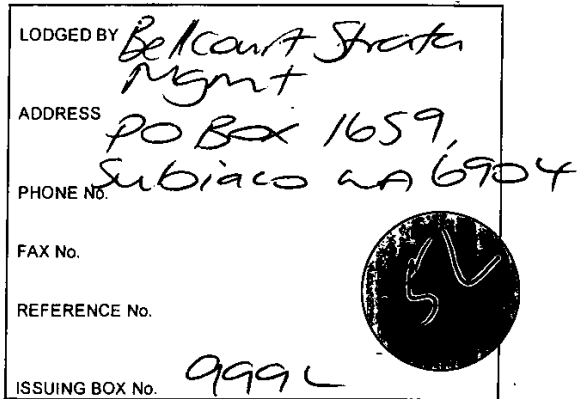 LODGED BY Bellcourt Strata
Mgmt
ADDRESS PO Box 1659,
Subiaco WA 6904
PHONE No.
FAX No.
REFERENCE No.
ISSUING BOX No. 999L